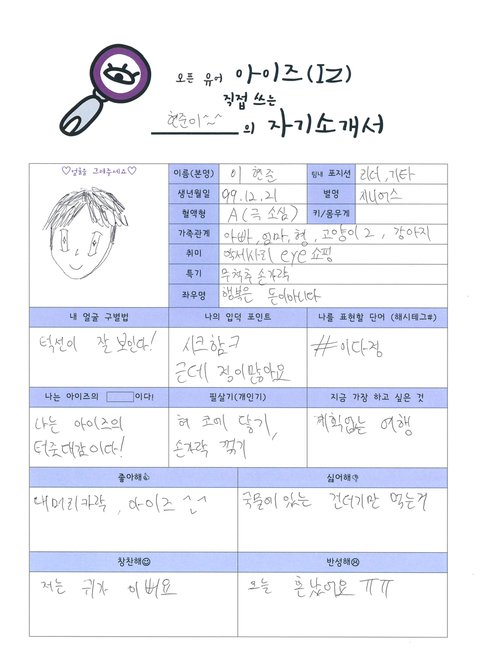 오픈 유어 아이즈(IZ)
직접 쓰는
현준이^~^ 의 자기소개서
♡얼굴을 그려주세요♡
이름(본명) 이 현준 팀내 포지션 리더, 기타
생년월일 99.12.21 별명 제니어스
혈액형 A(극 소심) 키/몸무게
가족관계 아빠, 엄마, 형, 고양이2, 강아지
취미 악세사리 eye 쇼핑
특기 무척추 손가락
좌우명 행복은 돈이아니다
내 얼굴 구별법 나의 입덕 포인트 나를 표현할 단어 (해시테그#)
턱선이 잘 보인다!
시크함ㅋ
근데 정이많아요
#이다정
나는 아이즈의 이다! 필살기(개인기) 지금 가장 하고 싶은 것
나는 아이즈의
터줏대감이다!
혀 코에 닿기,
손가락 꺾기
계획없는 여행
좋아해👍 싫어해👎
내머리카락, 아이즈 ^~^
국물에있는 건더기만 먹는거
칭찬해☺ 반성해☹
저는 귀가 이뻐요
오늘 혼났어요 ㅠㅠ